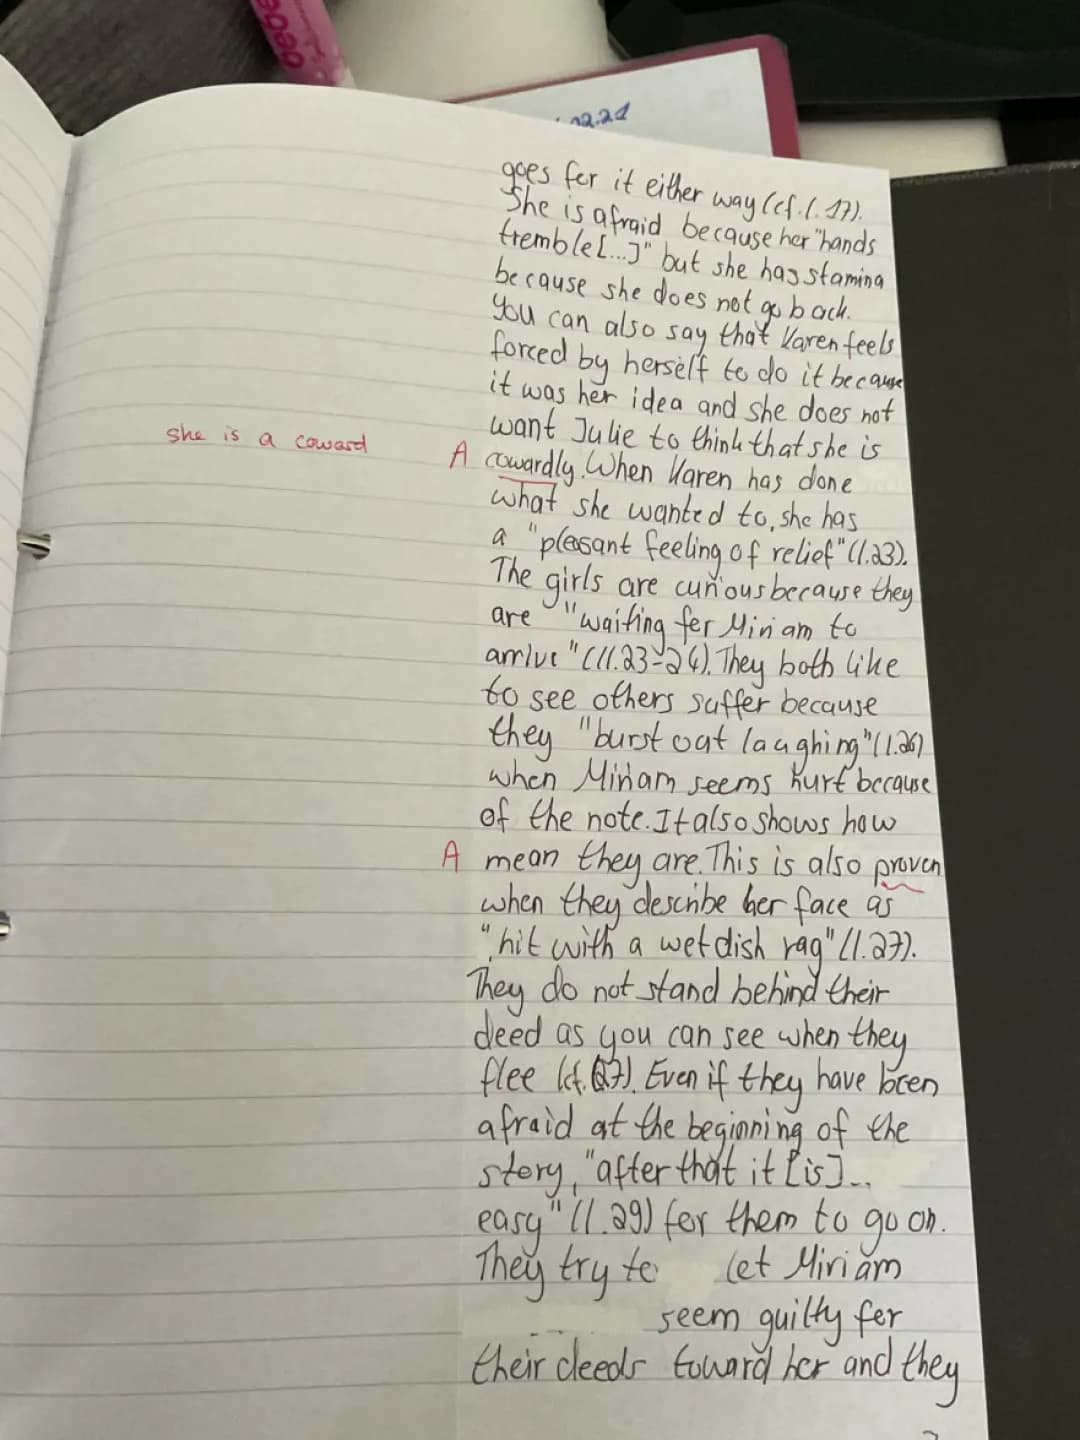 02.21
goes for it either way (cf. l. 17).
She is afraid because her "hands
tremble[...]" but she has stamina
because she does not go back.
You can also say that Karen feels
forced by herself to do it because
it was her idea and she does not
want Julie to think that she is
she is a coward A cowardly. When Karen has done
what she wanted to, she has
a "pleasant feeling of relief" (l.23).
The girls are curious because they
are "waiting for Miriam to
arrive" (ll.23-24). They both like
to see others suffer because
they "burst out laughing" (l.26)
when Miriam seems hurt because
of the note. It also shows how
A mean they are. This is also proven
when they describe her face as
"hit with a wet dish rag" (l.27).
They do not stand behind their
deed as you can see when they
flee (cf. 27). Even if they have been
afraid at the beginning of the
story, "after that it [is]...
easy" (l.29) for them to go on.
They try to let Miriam
seem guilty for
their deeds toward her and they